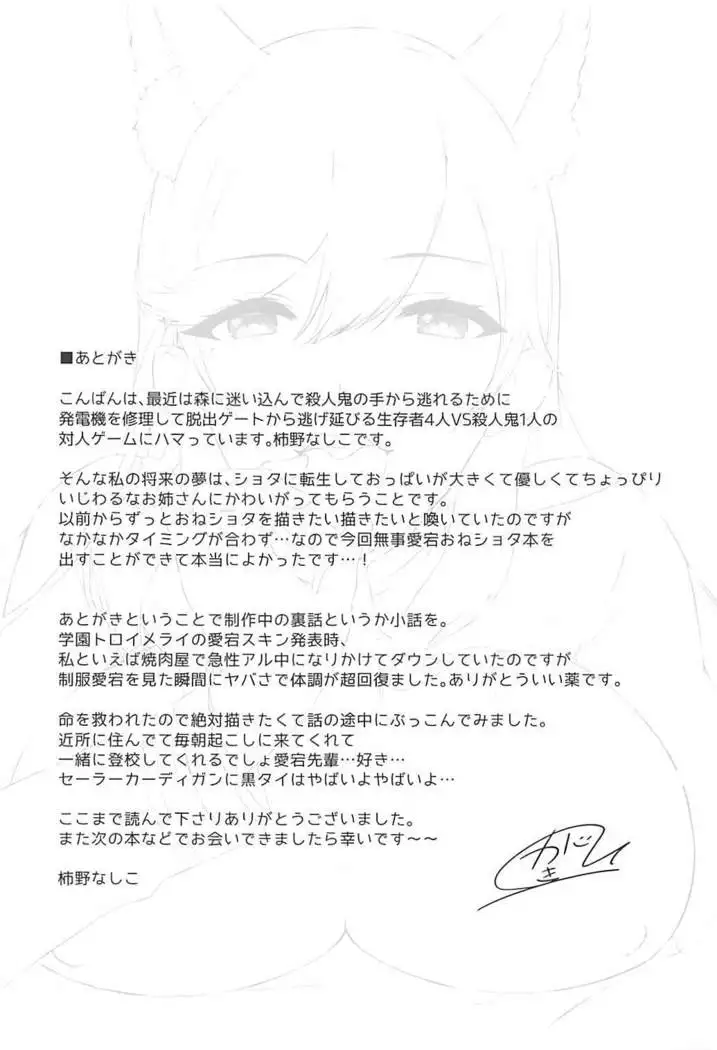 ■あとがき
こんばんは、最近は森に迷い込んで殺人鬼の手から逃れるために
発電機を修理して脱出ゲートから逃げ延びる生存者4人VS殺人鬼1人の
対人ゲームにハマっています。柿野なしこです。
そんな私の将来の夢は、ショタに転生しておっぱいが大きくて優しくてちょっぴり
いじわるなお姉さんにかわいがってもらうことです。
以前からずっとおねショタを描きたい描きたいと喚いていたのですが
なかなかタイミングが合わず…なので今回無事愛宕おねショタ本を
出すことができて本当によかったです…!
あとがきということで制作中の裏話というか小話を。
学園トロイメライの愛宕スキン発表時、
私といえば焼肉屋で急性アル中になりかけてダウンしていたのですが
制服愛宕を見た瞬間にヤバさで体調が超回復ました。ありがとういい薬です。
命を救われたので絶対描きたくて話の途中にぶっこんでみました。
近所に住んでて毎朝起こしに来てくれて
一緒に登校してくれるでしょ愛宕先輩…好き…
セーラーカーディガンに黒タイはやばいよやばいよ…
ここまで読んで下さりありがとうございました。
また次の本などでお会いできましたら幸いです〜〜
柿野なしこ